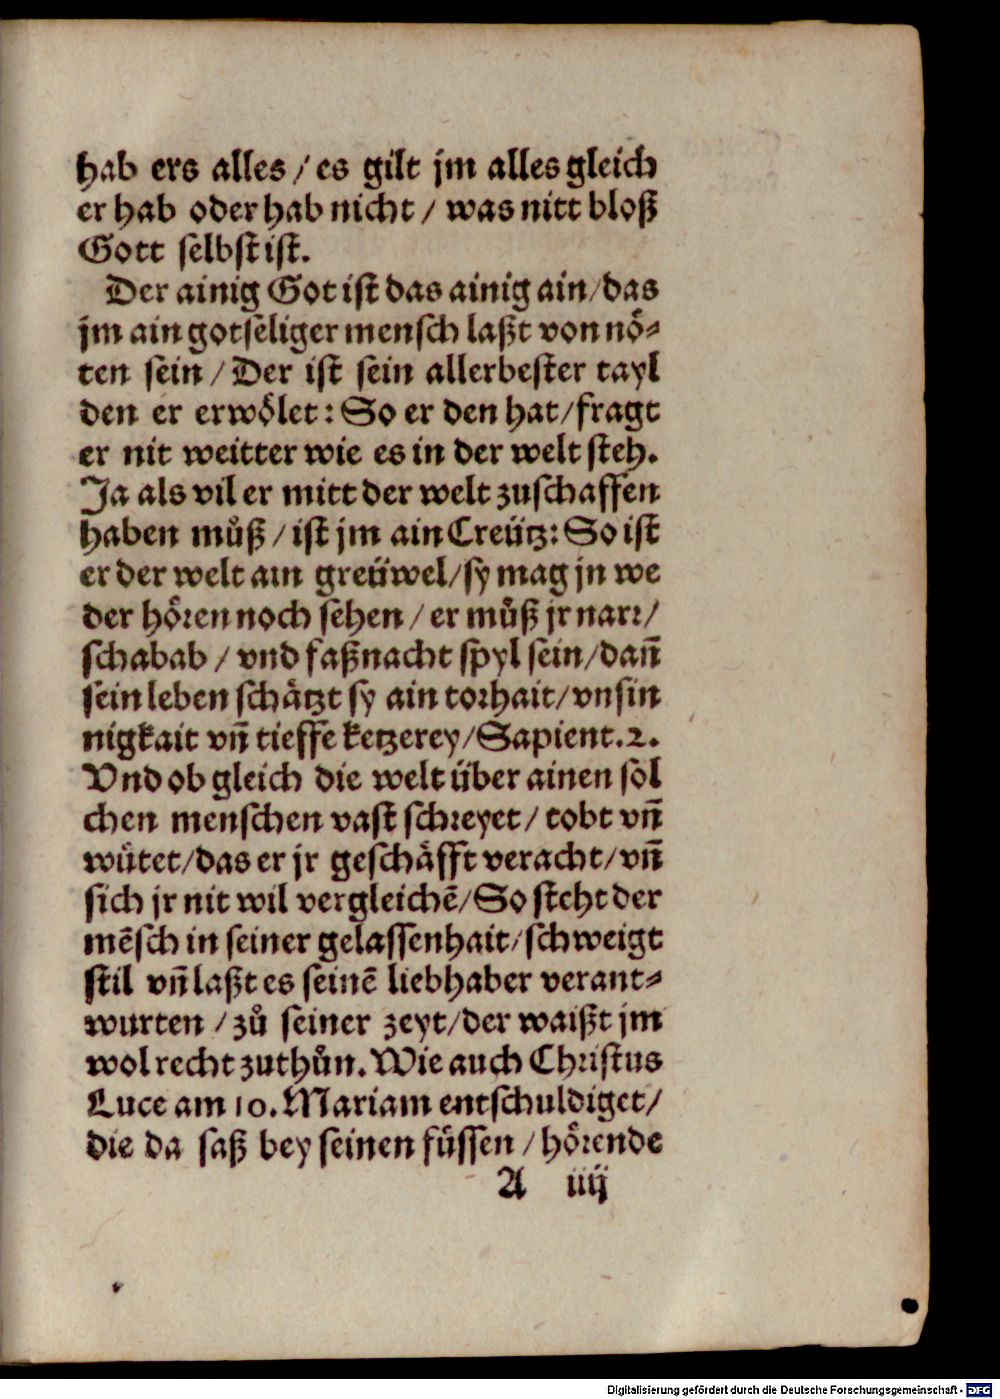 hab ers alles / es gilt jm alles gleich
er hab oder hab nicht / was nitt bloß
Gott selbst ist.
Der ainig Got ist das ainig ain / das
jm ain gotseliger mensch laßt von noͤ-
ten sein / Der ist sein allerbester tayl
den er erwoͤlet : So er den hat / fragt
er nit weitter wie es in der welt steh.
Ja als vil er mitt der welt zuschaffen
haben muͤß / ist jm ain Creütz : So ist
er der welt ain greüwel / sy mag jn we
der hoͤren noch sehen / er muͤß jr narr /
schabab / vnd faßnacht spyl sein / dañ
sein leben schaͤtzt sy ain torhait / vnsin
nigkait vñ tieffe ketzerey / Sapient. 2.
Vnd ob gleich die welt über ainen sol
chen menschen vast schreyet / tobt vñ
wuͤtet / das er jr geschaͤfft veracht / vñ
sich jr nit wil vergleichẽ / So steht der
mẽsch in seiner gelassenhait / schweigt
stil vñ laßt es seinẽ liebhaber verant-
wurten / zuͦ seiner zeyt / der waißt jm
wol recht zuthuͦn. Wie auch Christus
Luce am 10. Mariam entschuldiget /
die da saß bey seinen fuͤssen / hoͤrende
A iiij
Digitalisierung gefördert durch die Deutsche Forschungsgemeinschaft - DFG